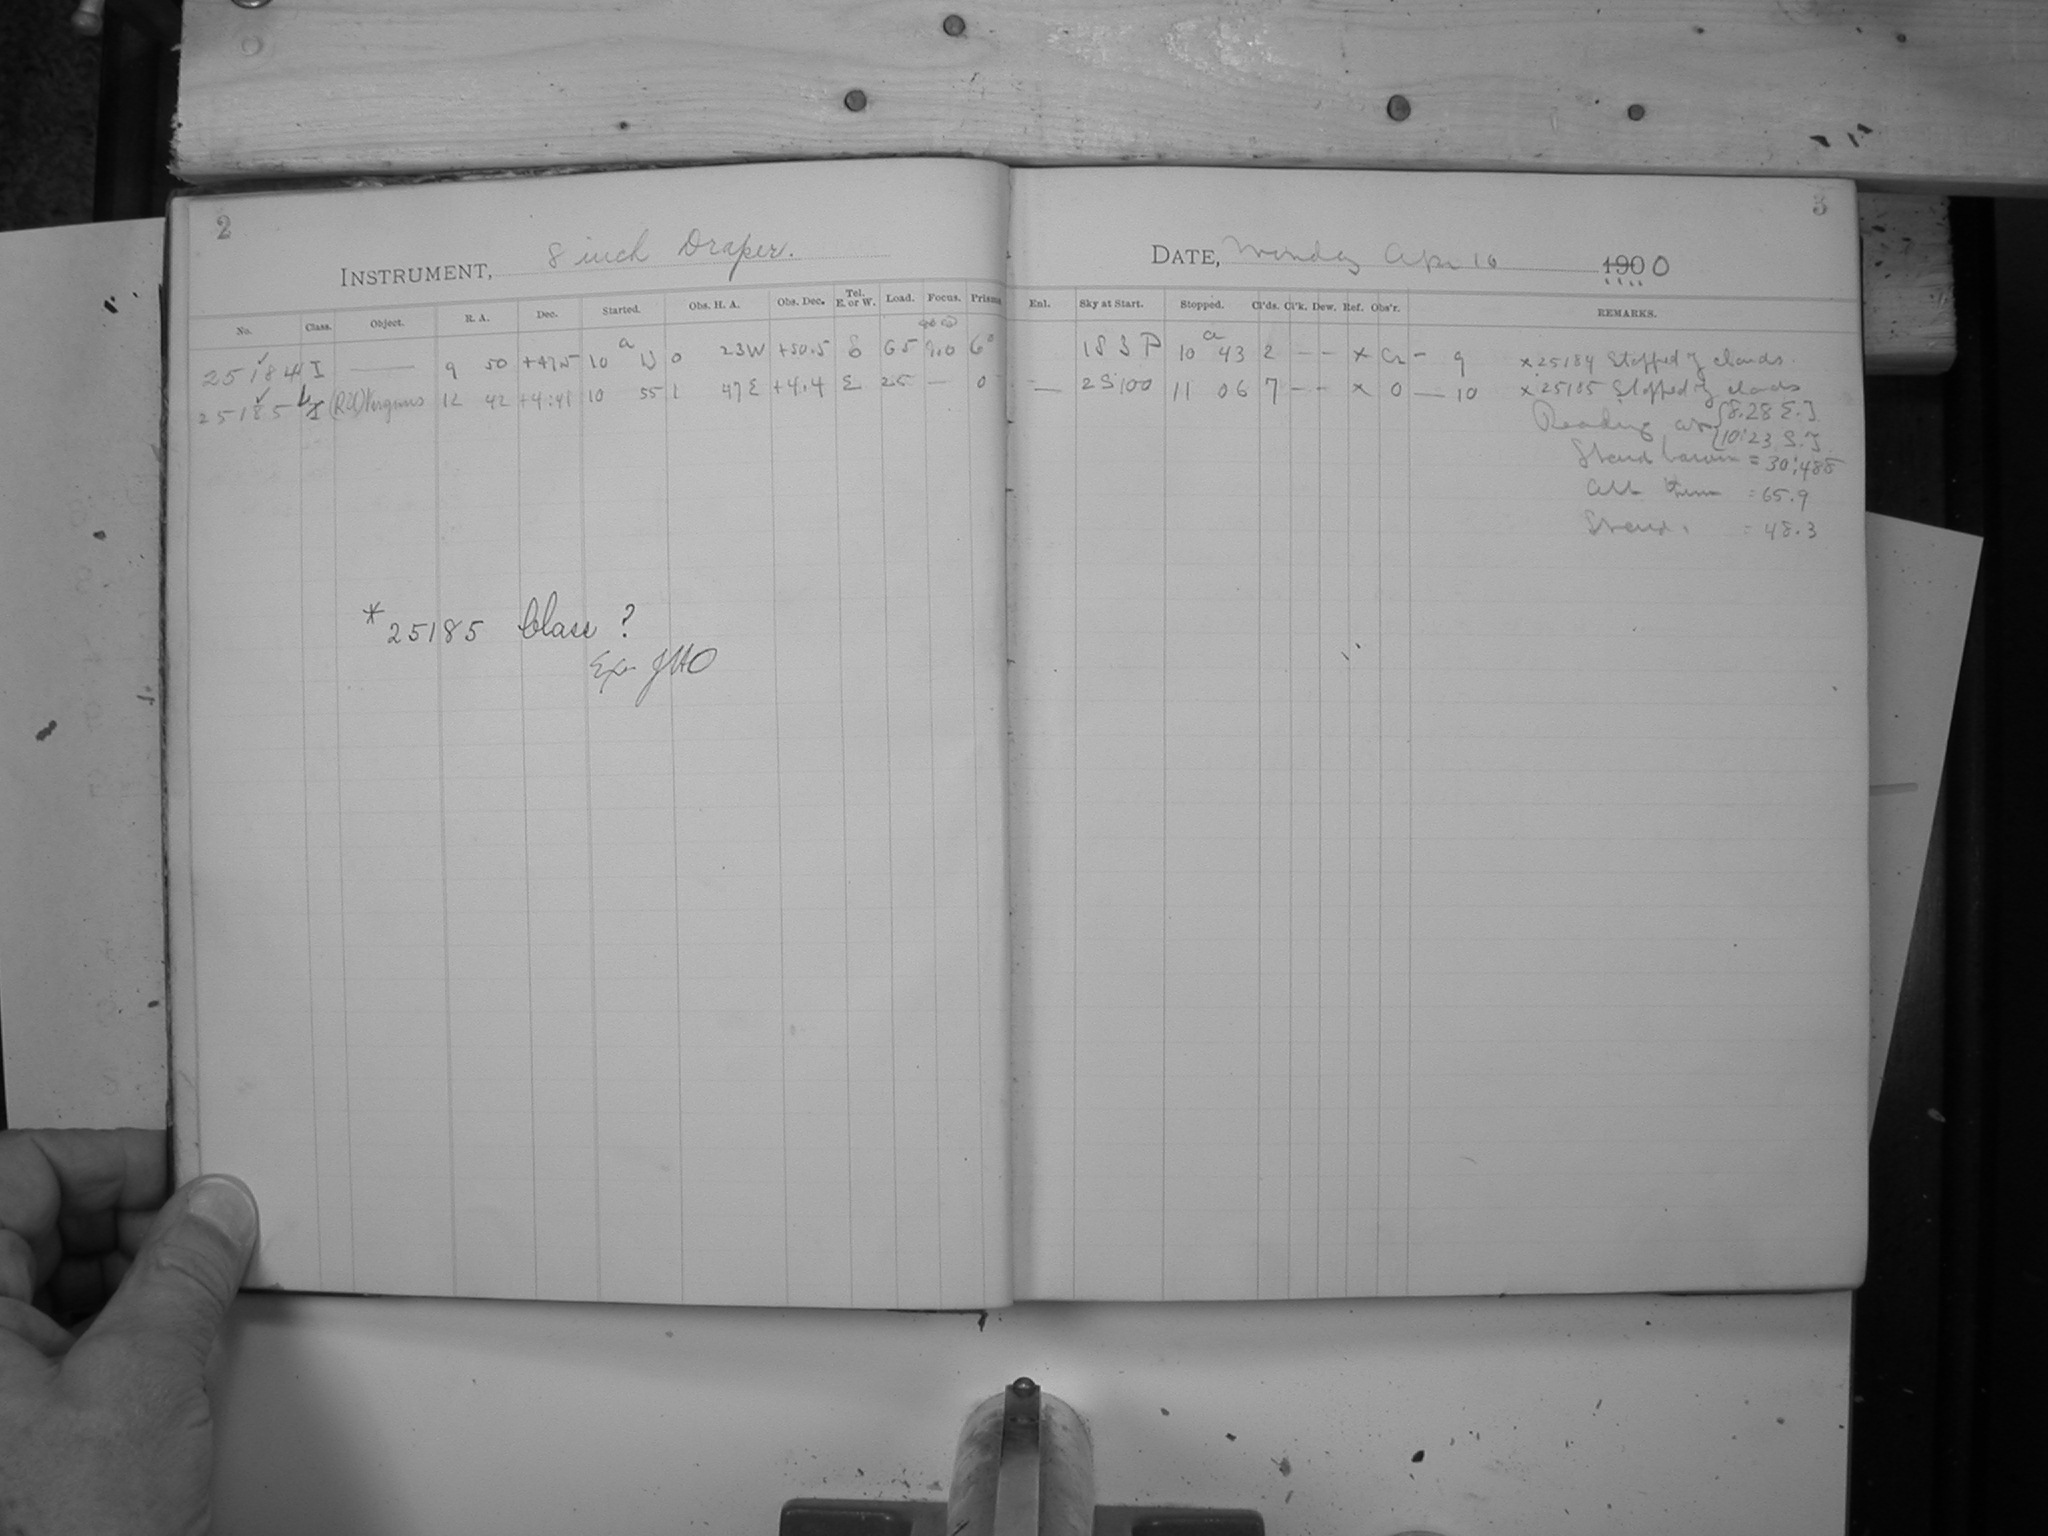 2
3
INSTRUMENT, 8 inch Draper.
DATE, Monday Apr 16 1900
No. Class. Object. R. A. Dec. Started. Obs. H. A. Obs. Dec. Tel. E. or W. Load. Focus. Prism
Enl. Sky at Start. Stopped. Cl'ds. Cl'k. Dew. Ref. Obs'r. REMARKS.
25184 I — 9 50 10 a 0 23W +50.5 65 9.0 6°
1S3P 10 a 43 2 – – x – 9 x 25184 Stopped clouds.
25185 (RU) Virginis 12 42 +4:41 10 55 1 47 E +4.4 E 25 — 0
— 2S100 11 06 7 – – x O — 10 x 25185 Stopped clouds
Reading {8.28 E.}
{10:23 S.}
Stand barom = 30.488
Att = 65.9
Stand. = 48.3
*25185 Class ?
JHO